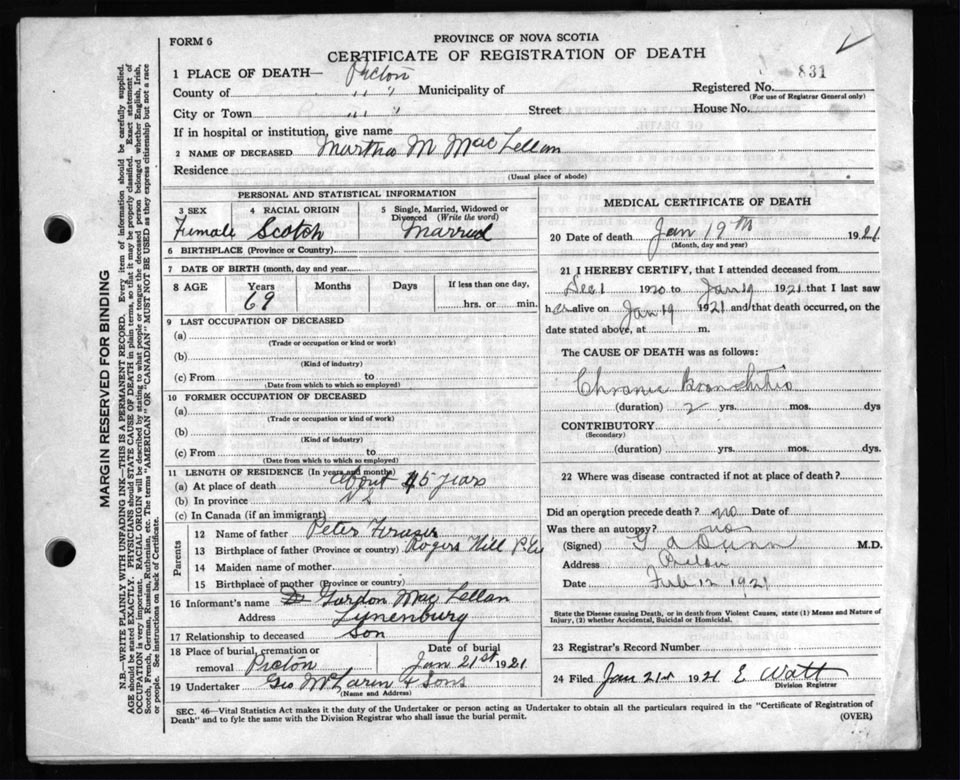 FORM 6
PROVINCE OF NOVA SCOTIA
CERTIFICATE OF REGISTRATION OF DEATH
1 PLACE OF DEATH— Pictou
831
County of " " Municipality of Registered No.
(For use of Registrar General only)
City or Town " " Street House No.
If in hospital or institution, give name
2 NAME OF DECEASED Martha M MacLellan
Residence
(Usual place of abode)
PERSONAL AND STATISTICAL INFORMATION
3 SEX Female
4 RACIAL ORIGIN Scotch
5 Single, Married, Widowed or Divorced (Write the word) Married
6 BIRTHPLACE (Province or Country)
7 DATE OF BIRTH (month, day and year)
8 AGE Years Months Days If less than one day,
69 hrs. or min.
9 LAST OCCUPATION OF DECEASED
(a)
(Trade or occupation or kind of work)
(b)
(Kind of industry)
(c) From to
(Date from which to which so employed)
10 FORMER OCCUPATION OF DECEASED
(a)
(Trade or occupation or kind of work)
(b)
(Kind of industry)
(c) From to
(Date from which to which so employed)
11 LENGTH OF RESIDENCE (In years and months)
(a) At place of death about 45 years
(b) In province N S
(c) In Canada (if an immigrant)
Parents
12 Name of father Peter Fraser
13 Birthplace of father (Province or country) Rogers Hill P Co
14 Maiden name of mother
15 Birthplace of mother (Province or country)
16 Informant's name Dr Gordon MacLellan
Address Lunenburg
17 Relationship to deceased Son
18 Place of burial, cremation or removal Pictou
Date of burial Jan 21st 1921
19 Undertaker Geo McLaren & Sons
(Name and Address)
MEDICAL CERTIFICATE OF DEATH
20 Date of death Jan 19th 1921
(Month, day and year)
21 I HEREBY CERTIFY, that I attended deceased from
Dec 1 1920 to Jan 19 1921 that I last saw
her alive on Jan 19 1921 and that death occurred, on the
date stated above, at m.
The CAUSE OF DEATH was as follows:
Chronic Bronchitis
(duration) 2 yrs. mos. dys
CONTRIBUTORY
(Secondary)
(duration) yrs. mos. dys.
22 Where was disease contracted if not at place of death?
Did an operation precede death? no Date of
Was there an autopsy? no
(Signed) G A Dunn M.D.
Address Pictou
Date Feb 12 1921
State the Disease causing Death, or in death from Violent Causes, state (1) Means and Nature of
Injury, (2) whether Accidental, Suicidal or Homicidal.
23 Registrar's Record Number
24 Filed Jan 21st 1921 E Watt
Division Registrar
SEC. 46—Vital Statistics Act makes it the duty of the Undertaker or person acting as Undertaker to obtain all the particulars required in the "Certificate of Registration of
Death" and to fyle the same with the Division Registrar who shall issue the burial permit.
(OVER)
MARGIN RESERVED FOR BINDING
N.B.—WRITE PLAINLY WITH UNFADING INK—THIS IS A PERMANENT RECORD. Every item of information should be carefully supplied.
AGE should be stated EXACTLY. PHYSICIANS should STATE CAUSE OF DEATH in plain terms, so that it may be properly classified. Exact statement of
OCCUPATION is very important. RACIAL ORIGIN will be described by stating to what people or tongue the deceased person belonged whether English, Irish,
Scotch, French, German, Russian, Ruthenian, etc. The terms "AMERICAN" OR "CANADIAN" MUST NOT BE USED as they express citizenship but not a race
of people. See instructions on back of Certificate.